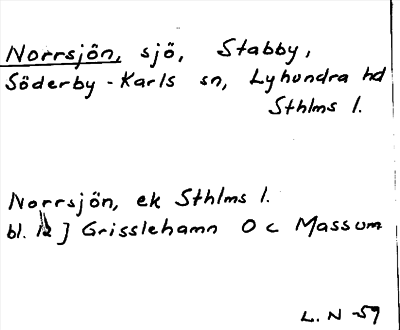 Norrsjön, sjö, Stabby,
Söderby-Karls sn, Lyhundra hd
Sthlms l.
Norrsjön, ek Sthlms l.
bl. 12 ] Grisslehamn O c Massum
L. N -59